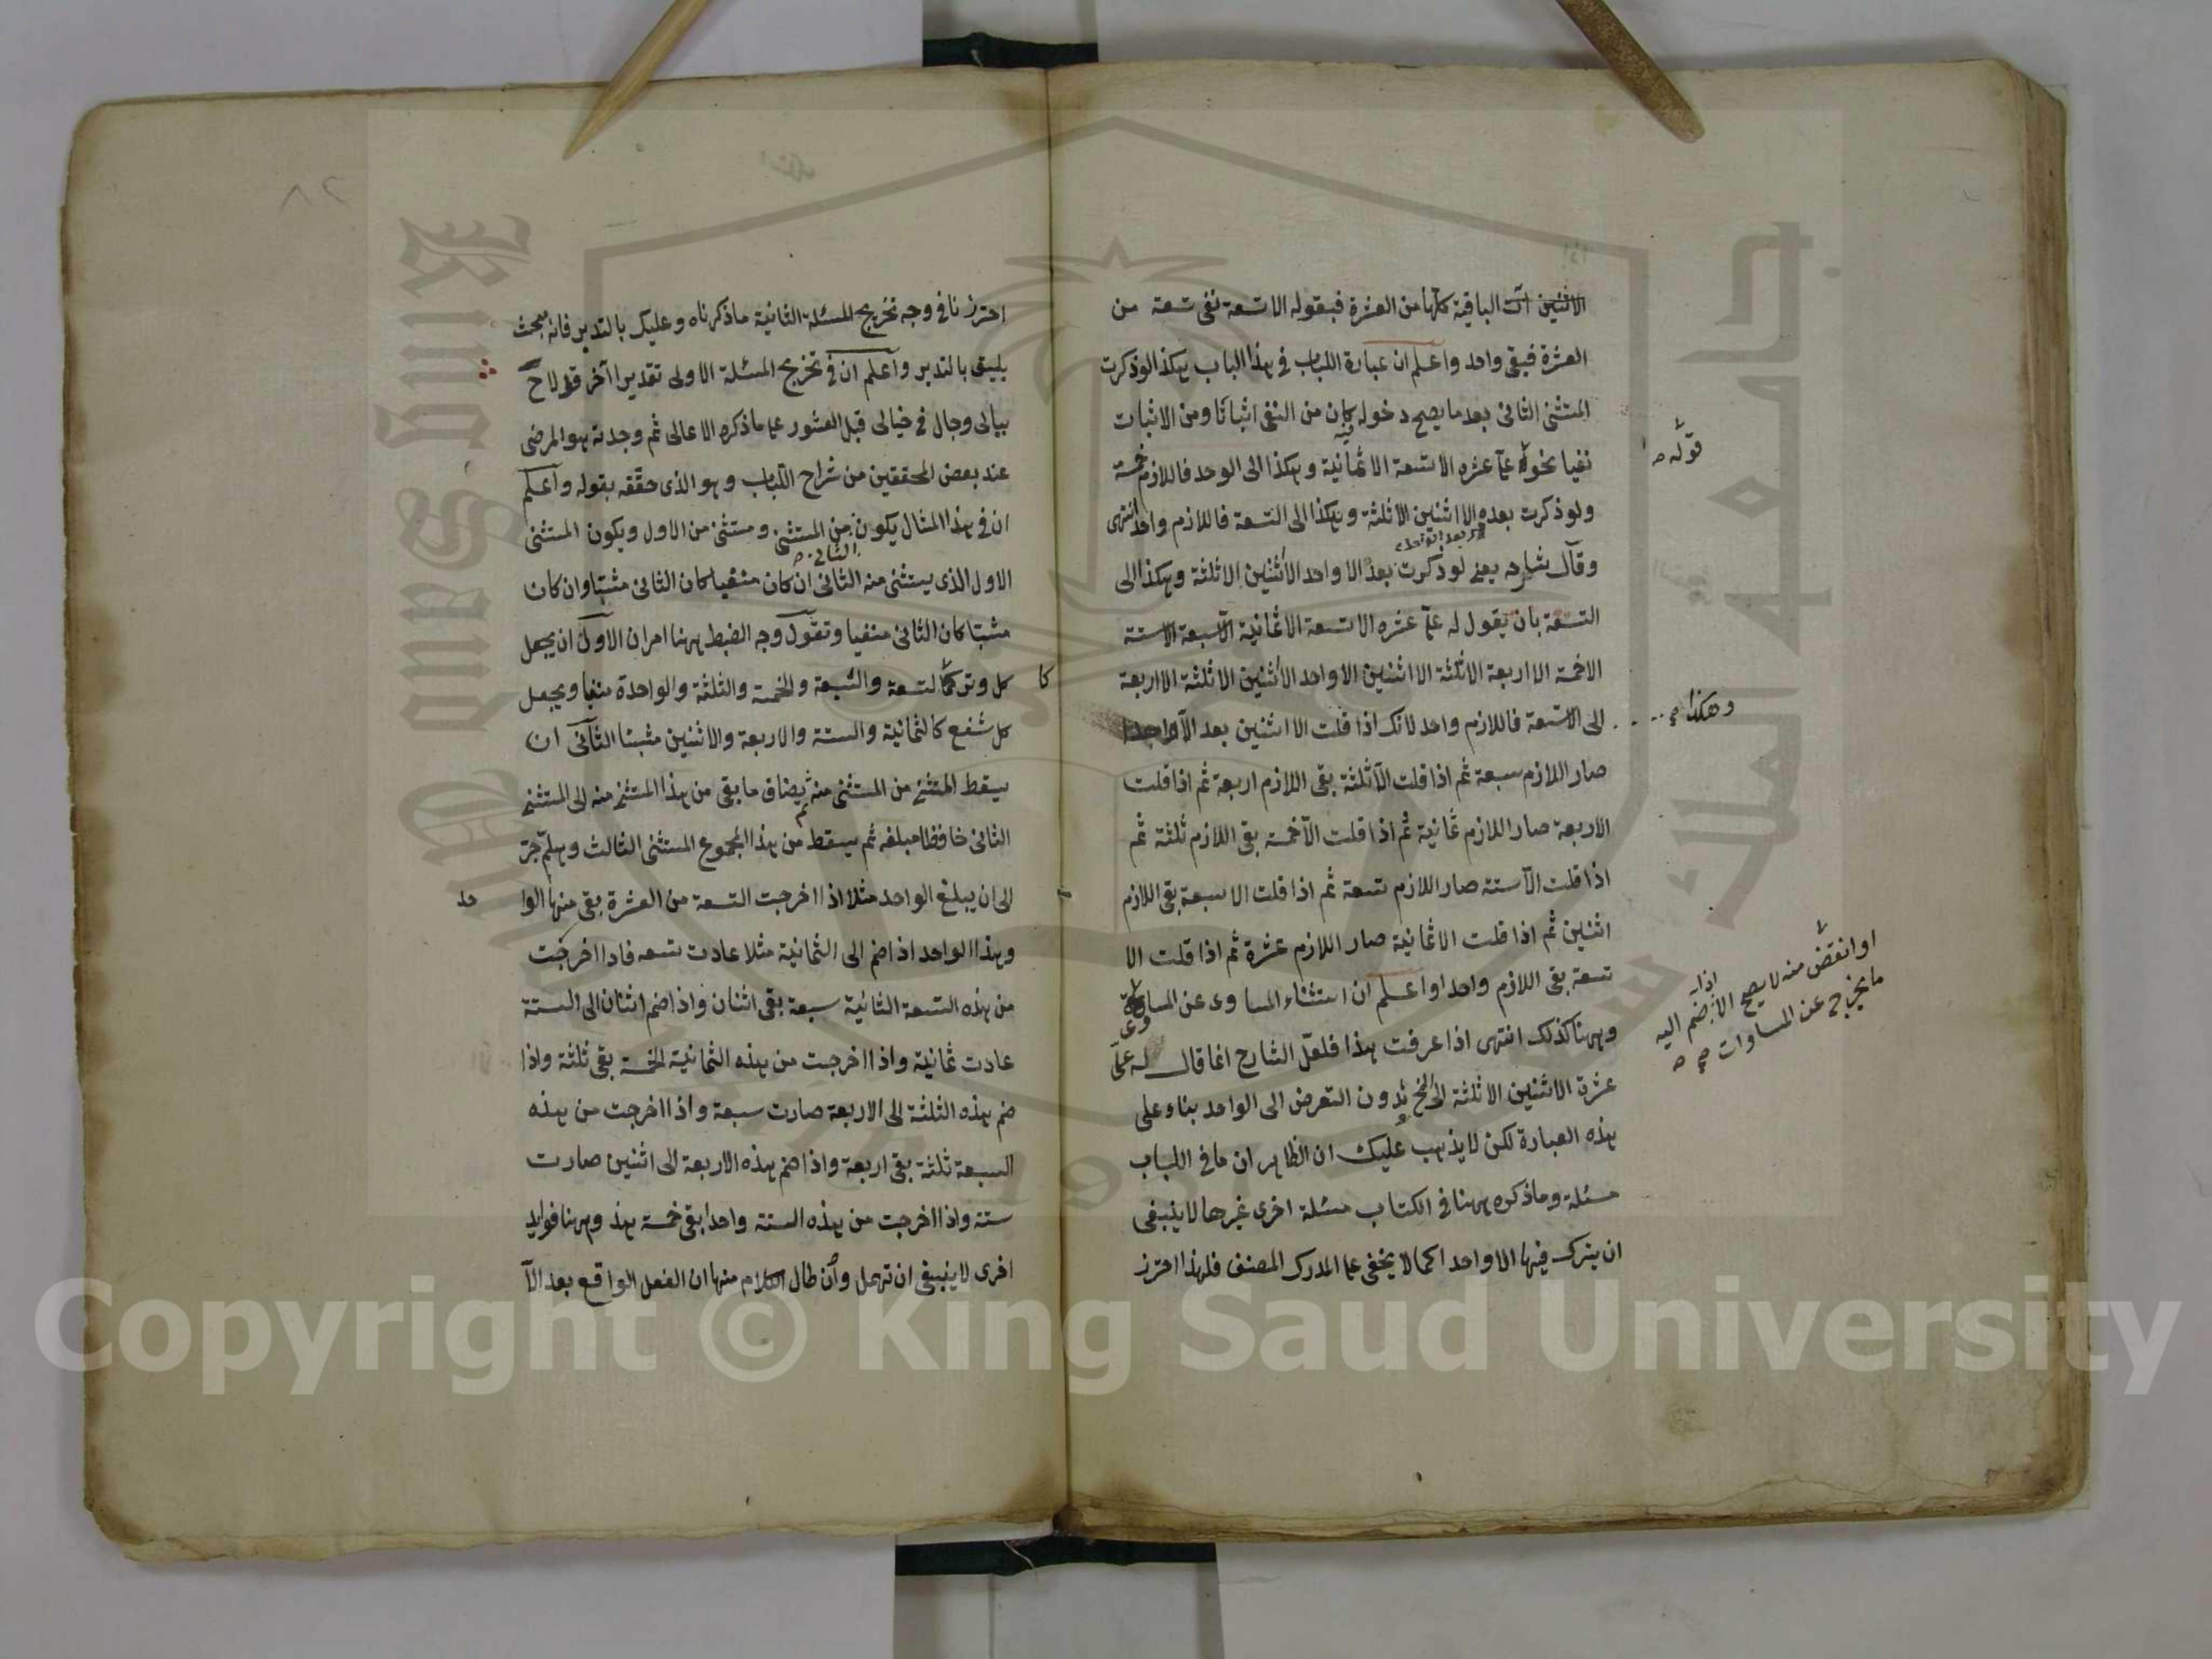 الاثنين الباقية كلها من العشرة فبقوله الا تسعة نفى تسعة من
العشرة فبقى واحد واعلم ان عبارة اللباب في هذا الباب هكذا لو ذكرت
المستثنى الثاني بعد ما يصح دخوله فيه كان من النفى اثباتا ومن الاثبات
نفيا نحو له على عشرة الا تسعة الا ثمانية وهكذا الى الواحد فاللازم خمسة
قوله صح
ولو ذكرت بعده الا اثنين الا ثلثة وهكذا الى التسعة فاللازم واحد انتهى
وقال شارحه يعنى لو ذكرت بعد الا واحد الا اثنين الا ثلثة وهكذا الى
التسعة بان يقول له على عشرة الا تسعة الا ثمانية الا سبعة الا ستة
الا خمسة الا اربعة الا ثلثة الا اثنين الا واحد الا اثنين الا ثلثة الا اربعة
وهكذا صح
الى الا تسعة فاللازم واحد لانك اذا قلت الا اثنين بعد الا واحدا
صار اللازم سبعة ثم اذا قلت الا ثلثة بقى اللازم اربعة ثم اذا قلت
الا اربعة صار اللازم ثمانية ثم اذا قلت الا خمسة بقى اللازم ثلثة ثم
اذا قلت الا ستة صار اللازم تسعة ثم اذا قلت الا سبعة بقى اللازم
اثنين ثم اذا قلت الا ثمانية صار اللازم عشرة ثم اذا قلت الا
تسعة بقى اللازم واحد واعلم ان استثناء المساوى عن المساوى
او انقص منه لا يصح الا اذا ضم اليه
ما يخرج عن المساوات صح
وههنا كذلك انتهى اذا عرفت هذا فلعل الشارح انما قال له على
عشرة الا اثنين الا ثلثة الى الخ بدون التعرض الى الواحد بناء على
هذه العبارة لكن لا يذهب عليك ان الظاهر ان ما في اللباب
مسئلة وما ذكره ههنا في الكتاب مسئلة اخرى غيرها لا ينبغى
ان يترك فيها الا واحد اكما لا يخفى على المدرك المصنف فلهذا احترز
احترزنا في وجه تخريج المسئلة الثانية ما ذكرناه وعليك بالتدبر فانه بحث
يليق بالتدبر واعلم ان في تخريج المسئلة الاولى تقديرا آخر قد لاح
ببالى وجال في خيالى قبل العثور على ما ذكره الاعالى ثم وجدته هو المرضى
عند بعض المحققين من شراح اللباب وهو الذى حققه بقوله واعلم
ان في هذا المثال يكون من المستثنى ومستثنى من الاول ويكون المستثنى
الثانى صح
الاول الذى يستثنى منه الثانى ان كان منفيا كان الثانى مثبتا وان كان
مثبتا كان الثانى منفيا وتقول وجه الضبط ههنا امران الاول ان يجعل
كل وتر كالتسعة والسبعة والخمسة والثلثة والواحدة منفيا ويجعل
كل شفع كالثمانية والستة والاربعة والاثنين مثبتا الثانى ان
يسقط المستثنى من المستثنى منه ثم يضاف ما بقى من هذا المستثنى منه الى المستثنى
الثانى حافظا مبلغه ثم يسقط من هذا المجموع المستثنى الثالث وهلم جرّ
الى ان يبلغ الواحد مثلا اذا اخرجت التسعة من العشرة بقى منها الوا حد
وهذا الواحد اذا ضم الى الثمانية مثلا عادت تسعة فاذا اخرجت
من هذه التسعة الثانية سبعة بقى اثنان واذا ضم اثنان الى الستة
عادت ثمانية واذا اخرجت من هذه الثمانية الخمسة بقى ثلثة واذا
ضم هذه الثلثة الى الاربعة صارت سبعة واذا اخرجت من هذه
السبعة ثلثة بقى اربعة واذا ضم هذه الاربعة الى اثنين صارت
ستة واذا اخرجت من هذه الستة واحدا بقى خمسة هذ وههنا فوايد
اخرى لا ينبغى ان تهمل وان طال الكلام منها ان الفعل الواقع بعد الا
٨٢
جامعة الملك سعود
King Saud University
1957
Copyright © King Saud University